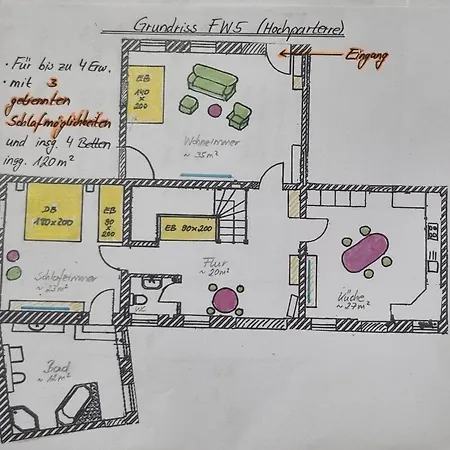 Grundriss FW5 (Hochparterre)
Eingang
• Für bis zu 4 Erw.
• mit 3
getrennten
Schlafmöglichkeiten
und insg. 4 Betten
insg. 120 m²
EB
140
x
200
Wohnzimmer
~ 35 m²
DB
180x200
EB
90
x
200
EB 90x200
Schlafzimmer
~ 23 m²
Flur
~ 20 m²
WC
Küche
~ 27 m²
Bad
~ 12 m²